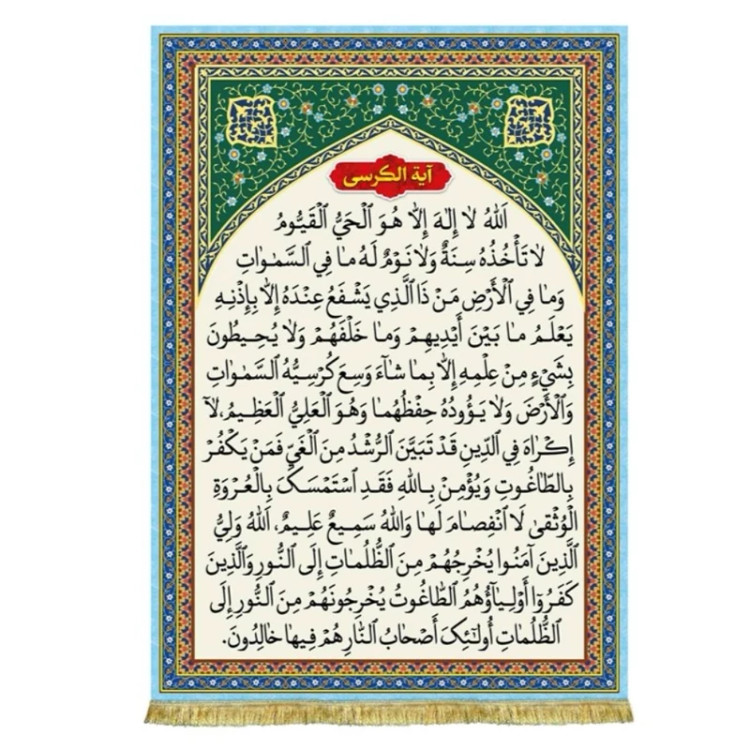 آية الكرسى
اَللهُ لا إِلٰهَ إِلاّ هُوَ اَلْحَيُّ اَلْقَيُّومُ
لا تَأْخُذُهُ سِنَةٌ وَلا نَوْمٌ لَهُ ما فِي اَلسَّمٰواتِ
وَما فِي اَلْأَرْضِ مَنْ ذَا اَلَّذِي يَشْفَعُ عِنْدَهُ إِلاّ بِإِذْنِهِ
يَعْلَمُ ما بَيْنَ أَيْدِيهِمْ وَما خَلْفَهُمْ وَلا يُحِيطُونَ
بِشَيْءٍ مِنْ عِلْمِهِ إِلاّ بِما شاءَ وَسِعَ كُرْسِيُّهُ اَلسَّمٰواتِ
وَاَلْأَرْضَ وَلا يَؤُودُهُ حِفْظُهُما وَهُوَ اَلْعَلِيُّ اَلْعَظِيمُ، لاۤ
إِكْراهَ فِي اَلدِّينِ قَدْ تَبَيَّنَ اَلرُّشْدُ مِنَ اَلْغَيِّ فَمَنْ يَكْفُرْ
بِالطّاغُوتِ وَيُؤْمِنْ بِاللهِ فَقَدِ اِسْتَمْسَكَ بِالْعُرْوَةِ
اَلْوُثْقىٰ لاَ اِنْفِصامَ لَها وَاَللهُ سَمِيعٌ عَلِيمٌ، اَللهُ وَلِيُّ
اَلَّذِينَ آمَنُوا يُخْرِجُهُمْ مِنَ اَلظُّلُماتِ إِلَى اَلنُّورِ وَاَلَّذِينَ
كَفَرُوا أَوْلِياؤُهُمُ اَلطّاغُوتُ يُخْرِجُونَهُمْ مِنَ اَلنُّورِ إِلَى
اَلظُّلُماتِ أُولٰئِكَ أَصْحابُ اَلنّارِ هُمْ فِيها خالِدُونَ.